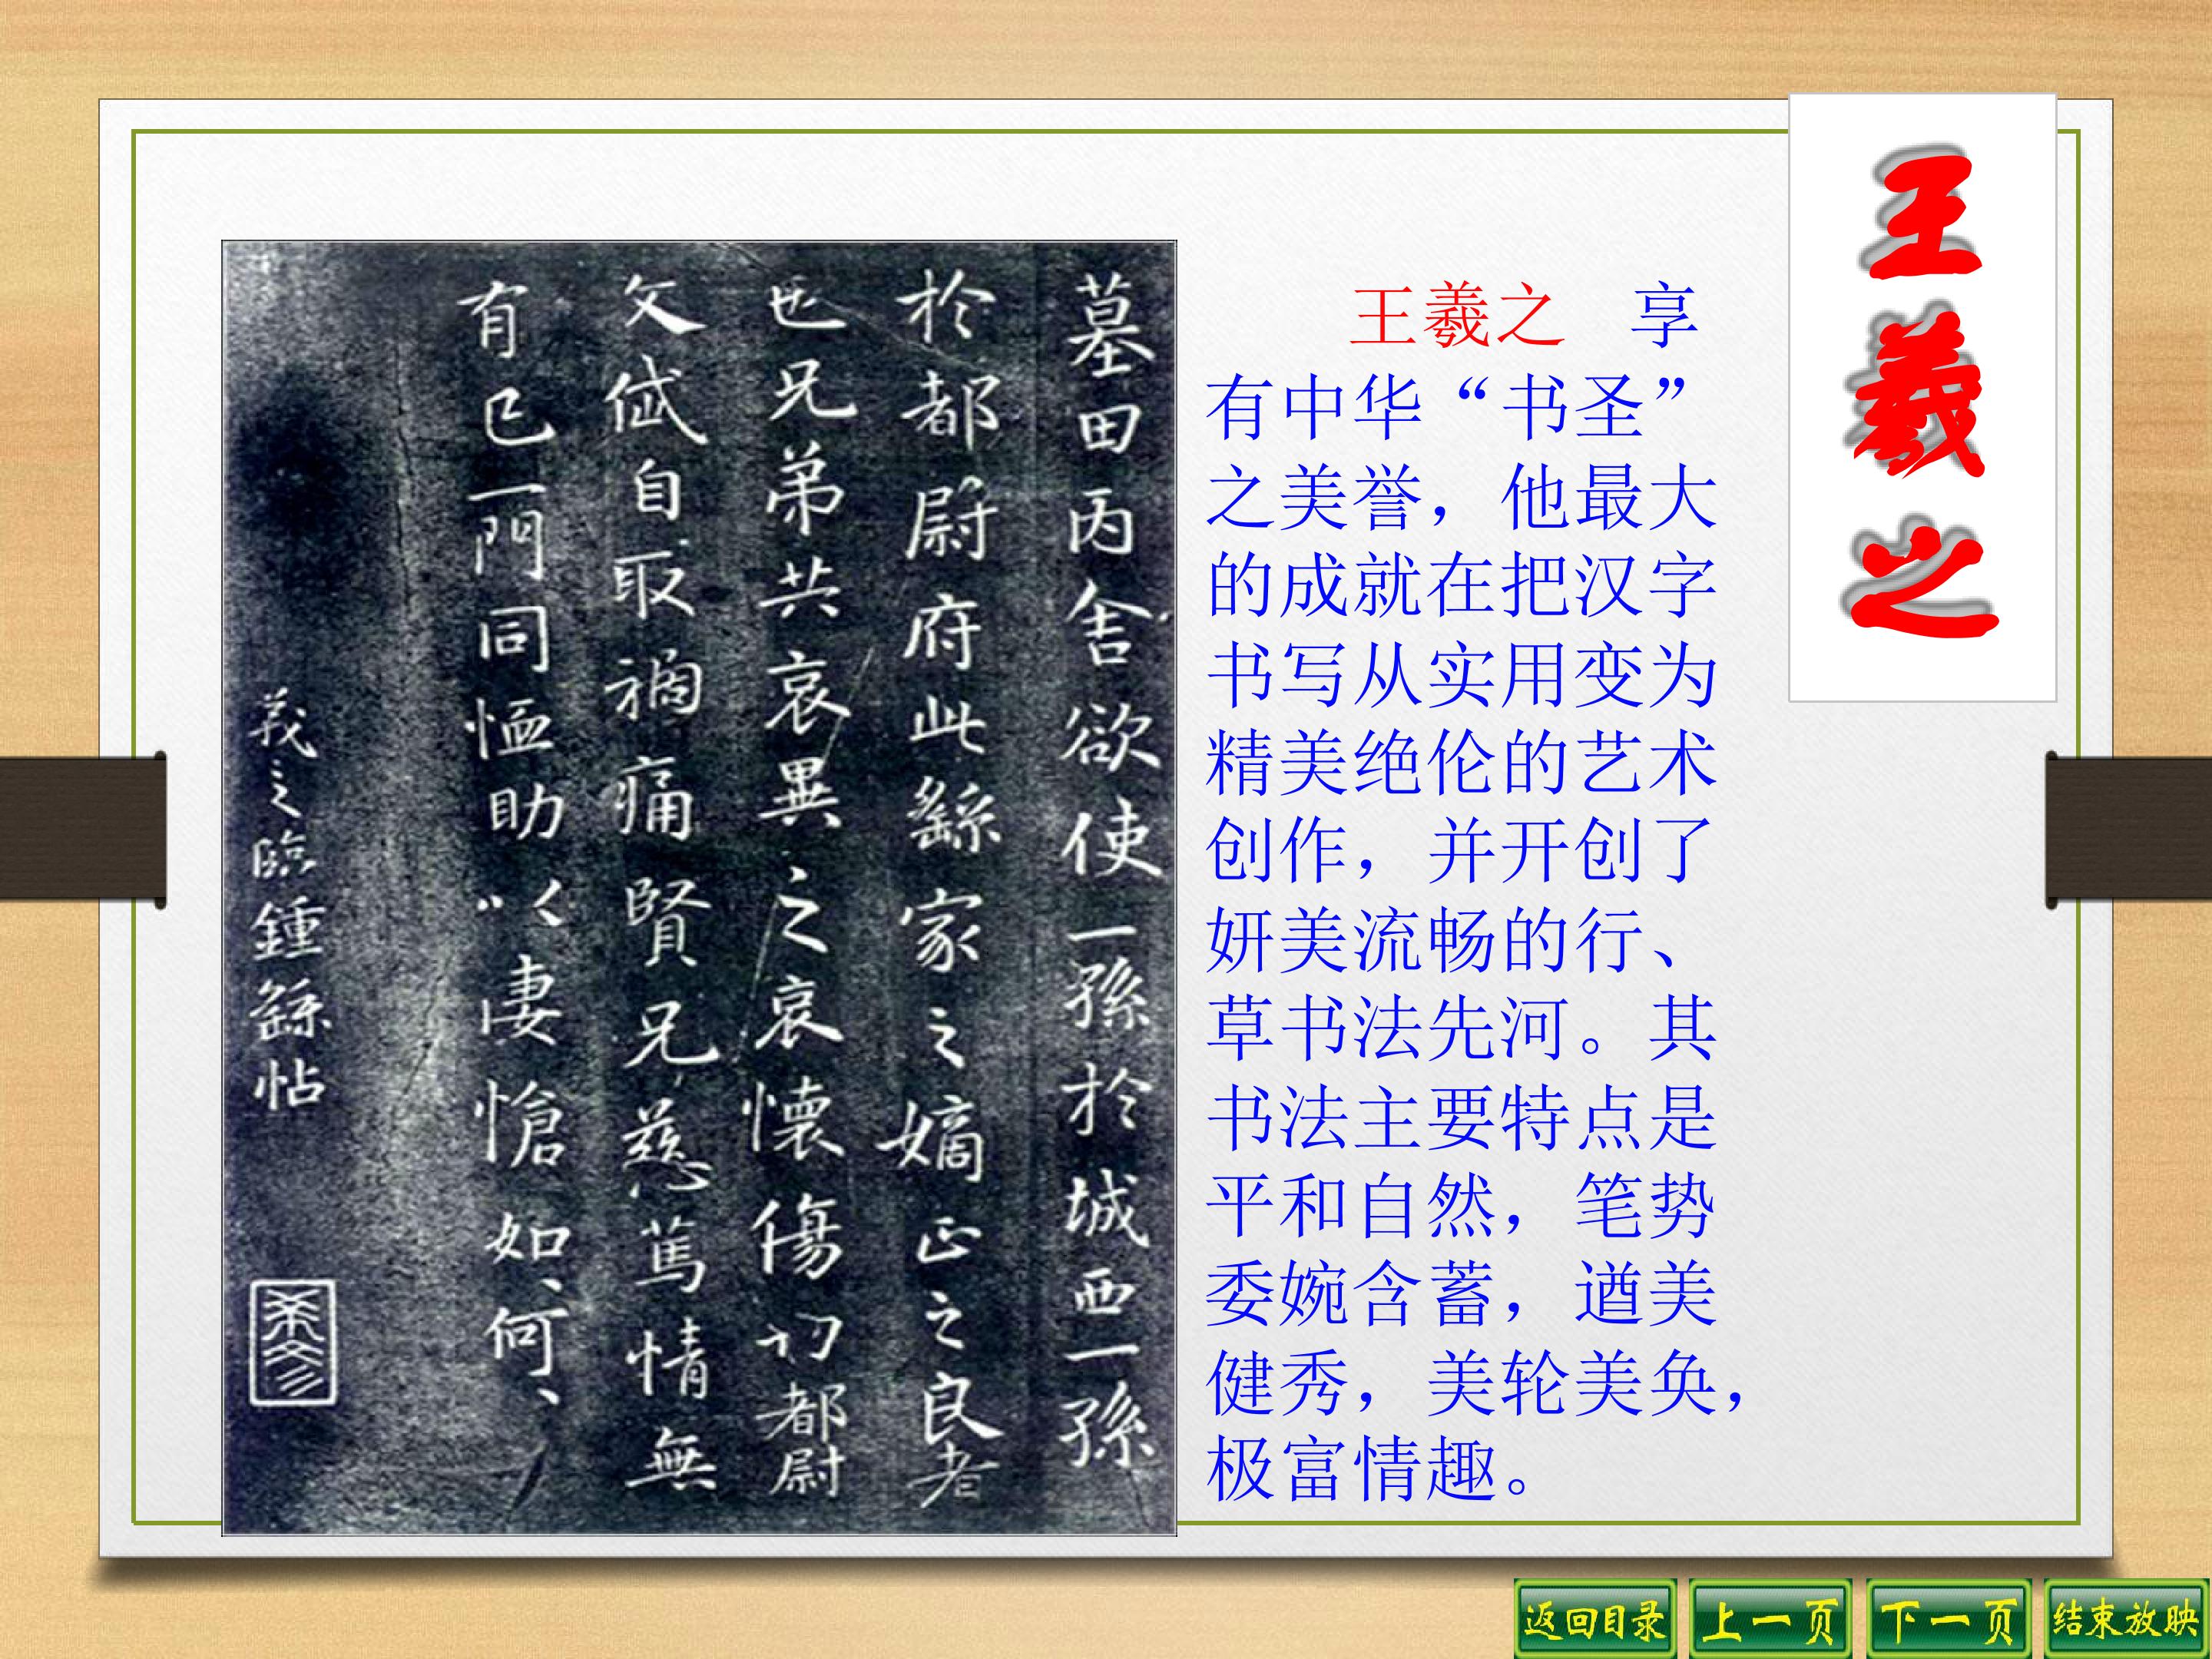 王羲之
墓田丙舍欲使一孫於城西一孫
於都尉府此繇家之嫡正之良者
也兄弟共哀異之哀懷傷切都尉
文岱自取禍痛賢兄慈篤情無
有已一門同恤助以悽愴如、何、
羲之臨鍾繇帖
王羲之 享
有中华“书圣”
之美誉，他最大
的成就在把汉字
书写从实用变为
精美绝伦的艺术
创作，并开创了
妍美流畅的行、
草书法先河。其
书法主要特点是
平和自然，笔势
委婉含蓄，遒美
健秀，美轮美奂，
极富情趣。
返回目录
上一页
下一页
结束放映